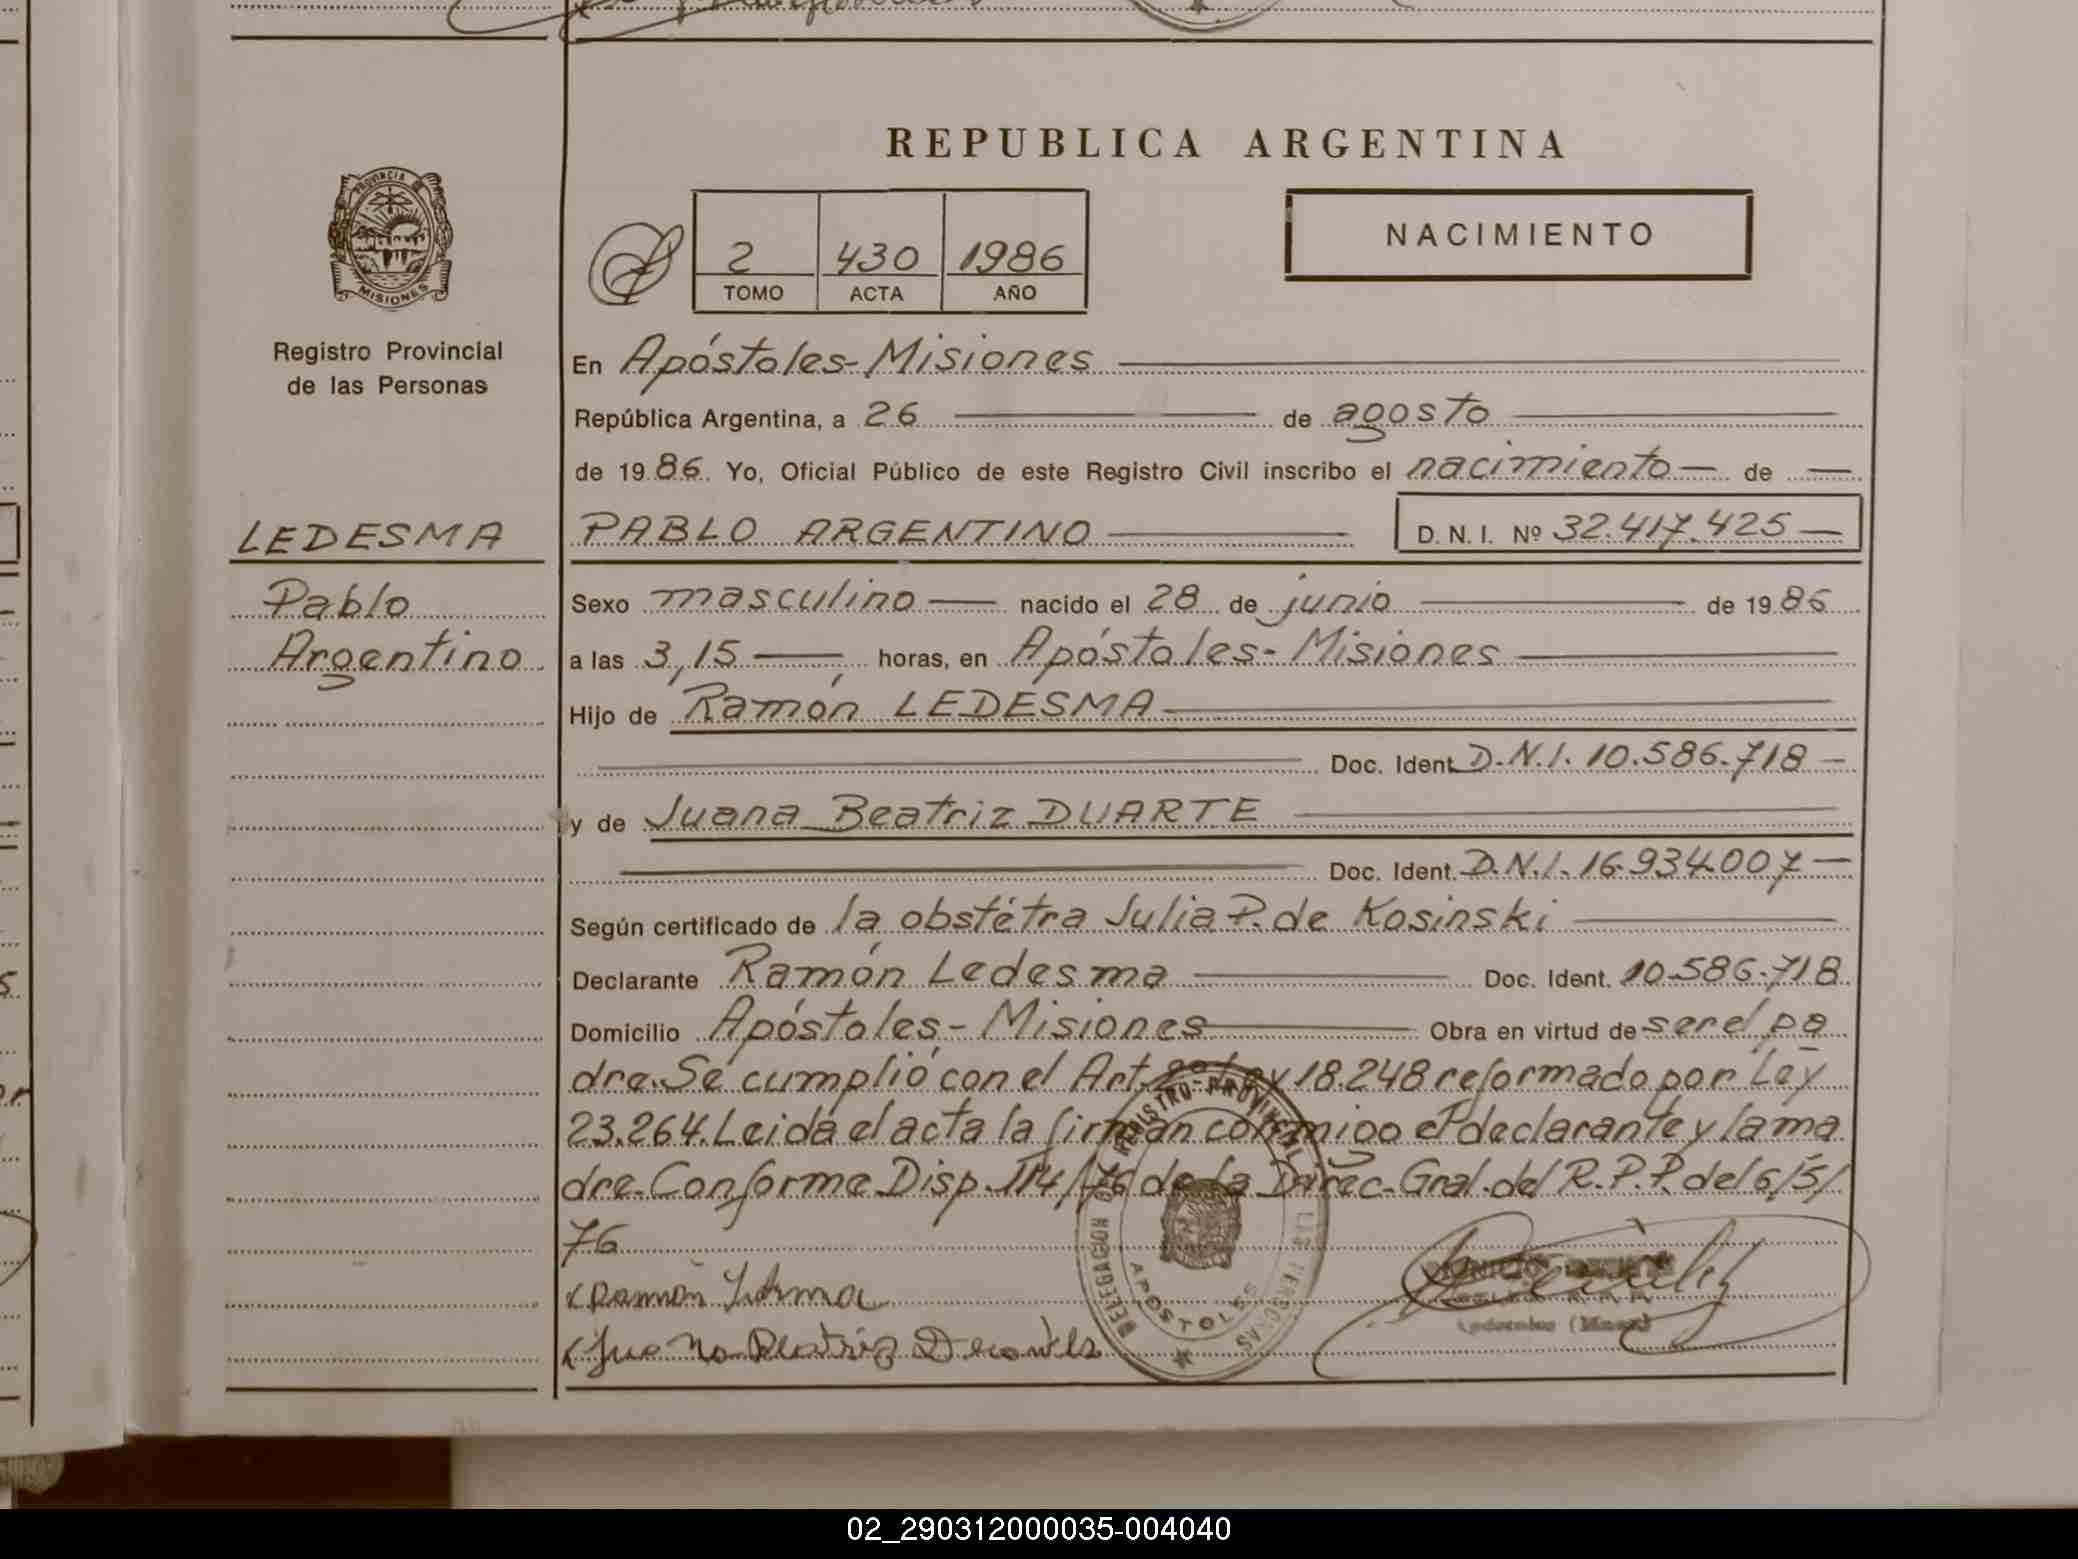 REPUBLICA ARGENTINA
PROVINCIA DE
MISIONES
Registro Provincial
de las Personas
2 430 1986
TOMO ACTA AÑO
NACIMIENTO
En Apóstoles-Misiones
República Argentina, a 26 de agosto
de 1986. Yo, Oficial Público de este Registro Civil inscribo el nacimiento de
LEDESMA
Pablo
Argentino
PABLO ARGENTINO D. N. I. Nº 32.417.425
Sexo masculino nacido el 28 de junio de 1986
a las 3,15 horas, en Apóstoles-Misiones
Hijo de Ramón LEDESMA
Doc. Ident. D.N.I. 10.586.718
y de Juana Beatriz DUARTE
Doc. Ident. D.N.I. 16.934.007
Según certificado de la obstétra Julia P. de Kosinski
Declarante Ramón Ledesma Doc. Ident. 10.586.718
Domicilio Apóstoles-Misiones Obra en virtud de ser el pa
dre. Se cumplió con el Art. 2º Ley 18.248 reformado por Ley
23.264. Leida el acta la firman conmigo el declarante y la ma
dre. Conforme Disp. 114/76 de la Direc. Gral. del R.P.P. del 6/5/
76
Ramón
Beatriz
DELEGACION DEL REGISTRO PROVINCIAL DE LAS PERSONAS
APOSTOLES
02_290312000035-004040